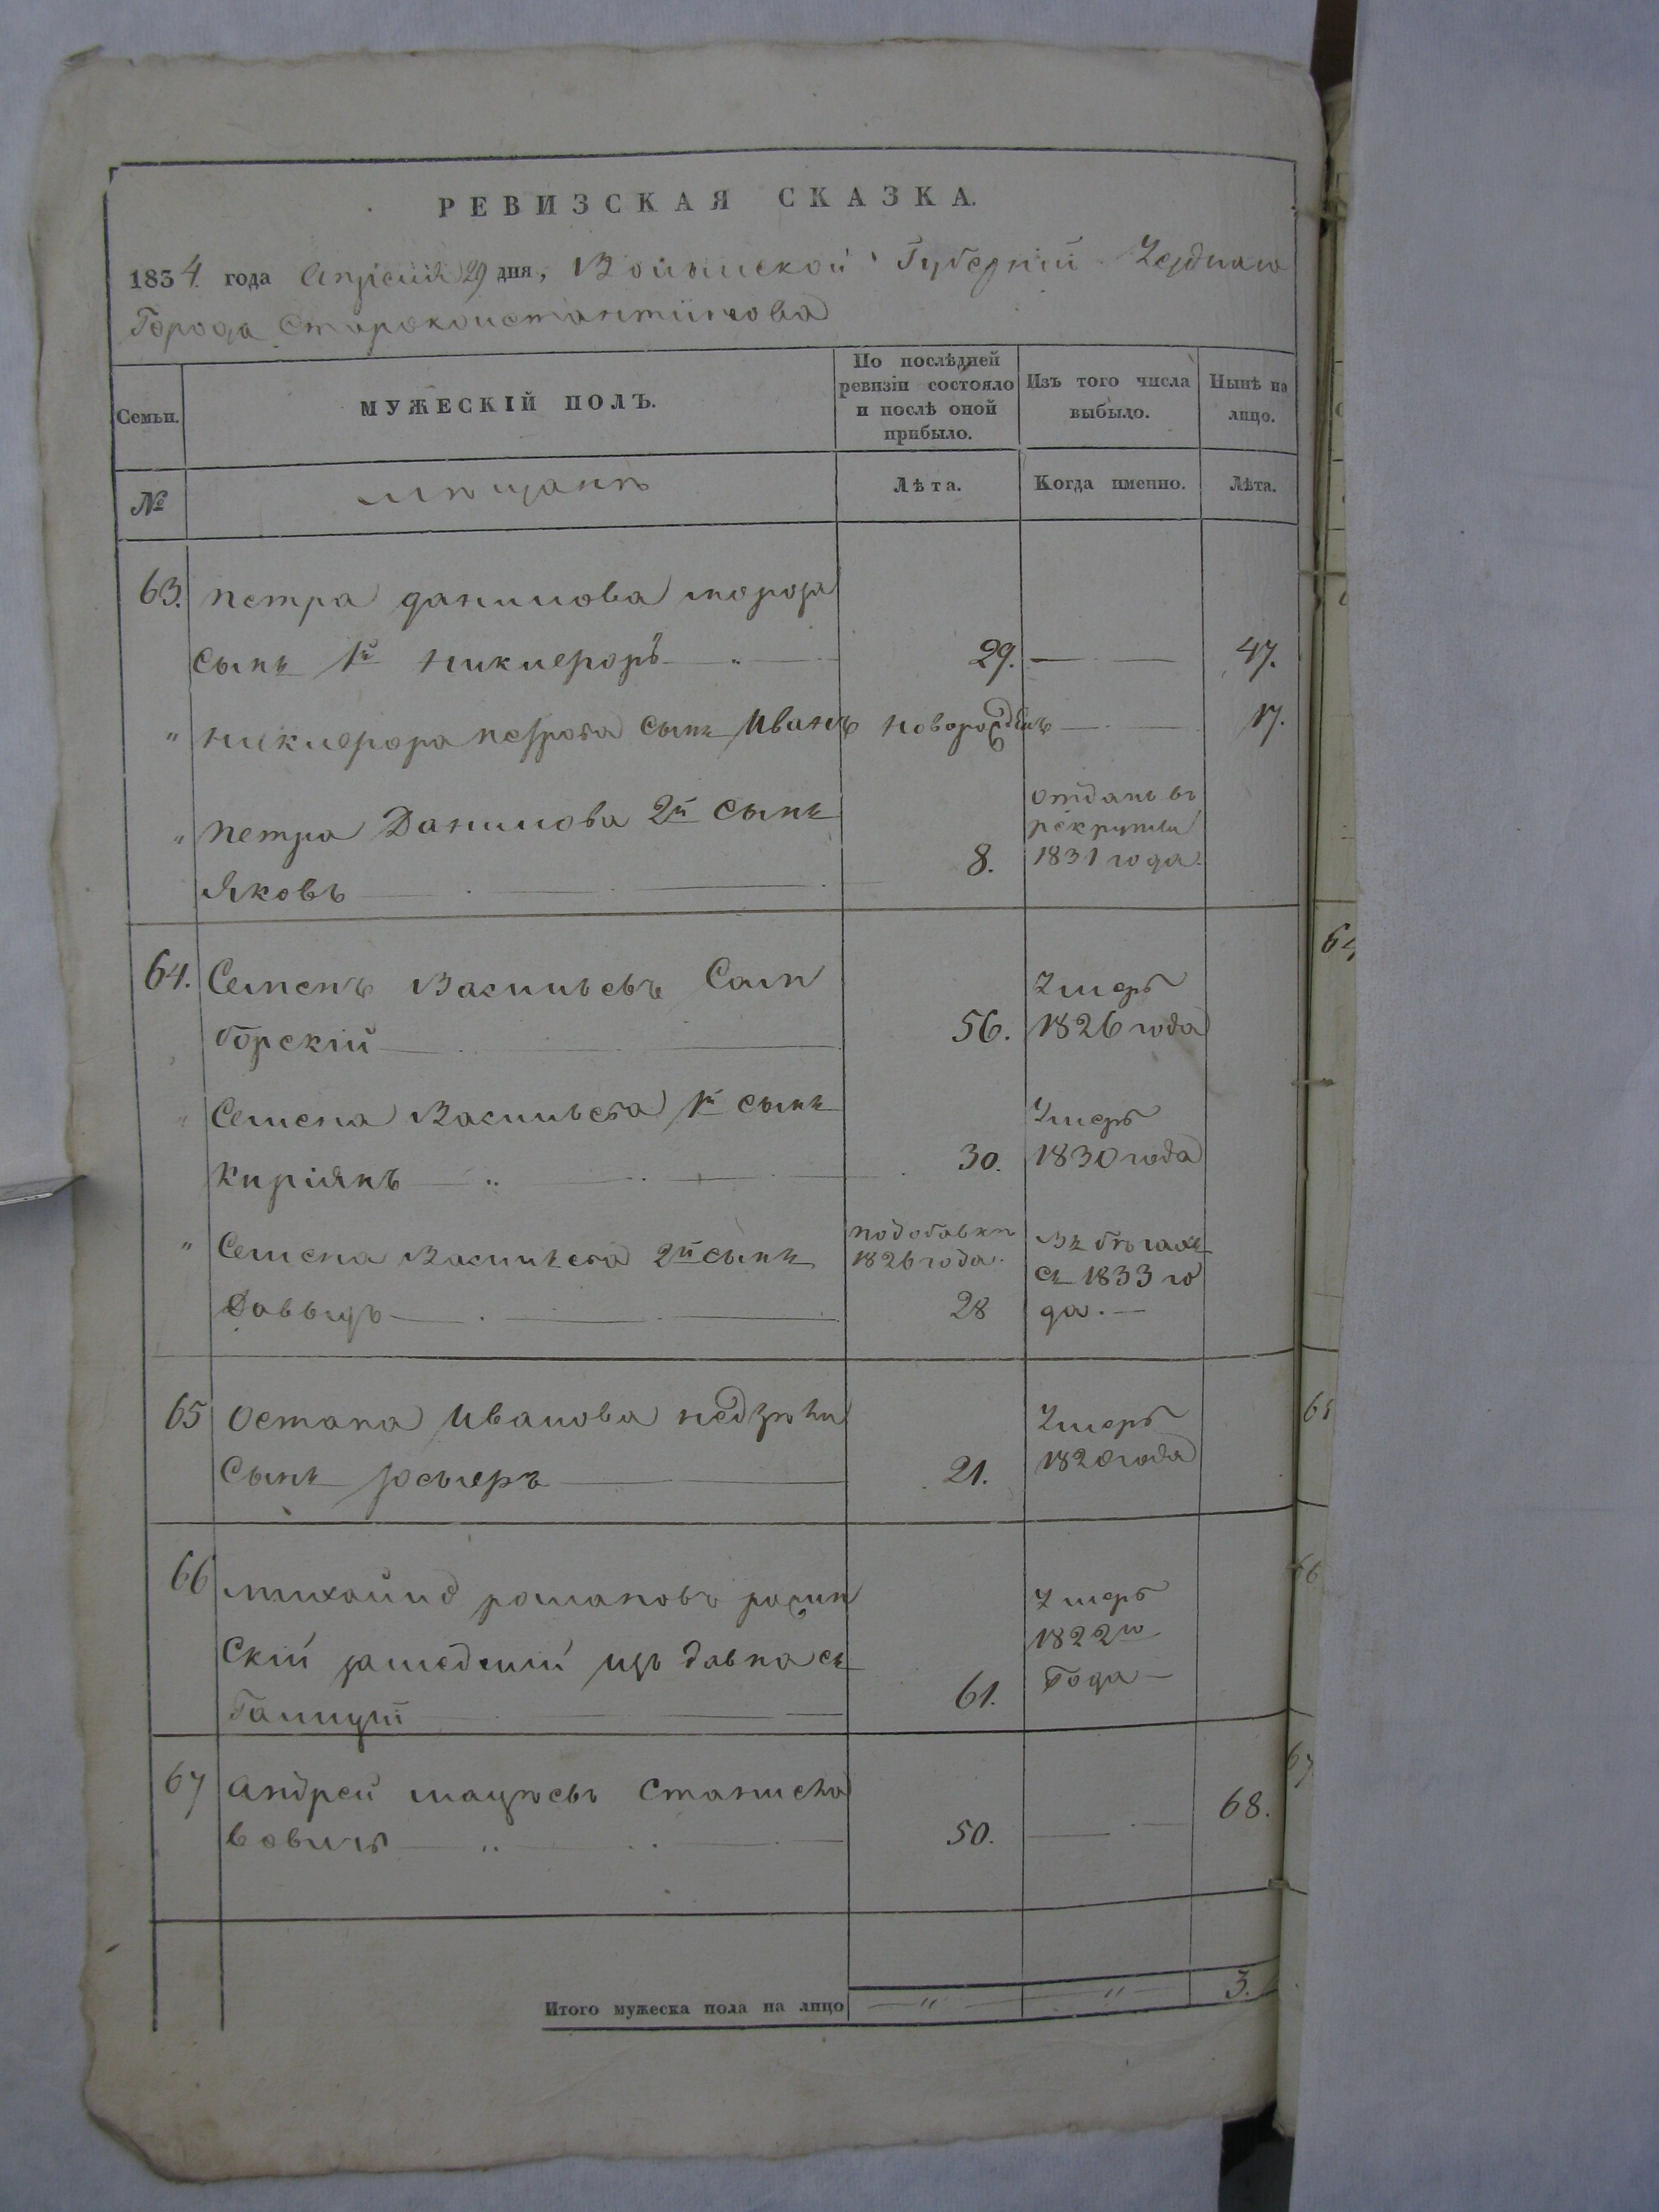 РЕВИЗСКАЯ СКАЗКА.
1834 года Апрѣля 29 дня, Волынской Губерніи Уезднаго
Города Староконстантинова
Семьи.
МУЖЕСКІЙ ПОЛЪ.
По послѣдней ревизіи состояло и послѣ оной прибыло.
Изъ того числа выбыло.
Нынѣ на лицо.
№
мѣщанъ
Лѣта.
Когда именно.
Лѣта.
63. петра данилова
сынъ 1й никиеɸоръ 29. 47.
" никиɸора петрова сынъ Иванъ новорожденъ 17.
" петра Данилова 2й сынъ
Яковъ 8.
отданъ въ
рекруты
1831 года.
64. Семенъ Васильевъ Сам
борскій 56.
Умеръ
1826 года
" Семена Васильева 1й сынъ
Киріякъ 30.
Умеръ
1830 года
" Семена Васильева 2й сынъ
Давыдъ
подобавкѣ
1826 года.
28
Въ бѣгахъ
съ 1833 го
да.
65 Остапа Иванова
Сынъ Іосиɸъ 21.
Умеръ
1820 года
66 михайло романовъ
Скій зашедшій издавна съ
Галиціи 61.
Умеръ
1822го
Года
67 Андрей мацѣевъ Станисла
вовичъ 50. 68.
Итого мужеска пола на лицо " " 3.
64
65
66
67